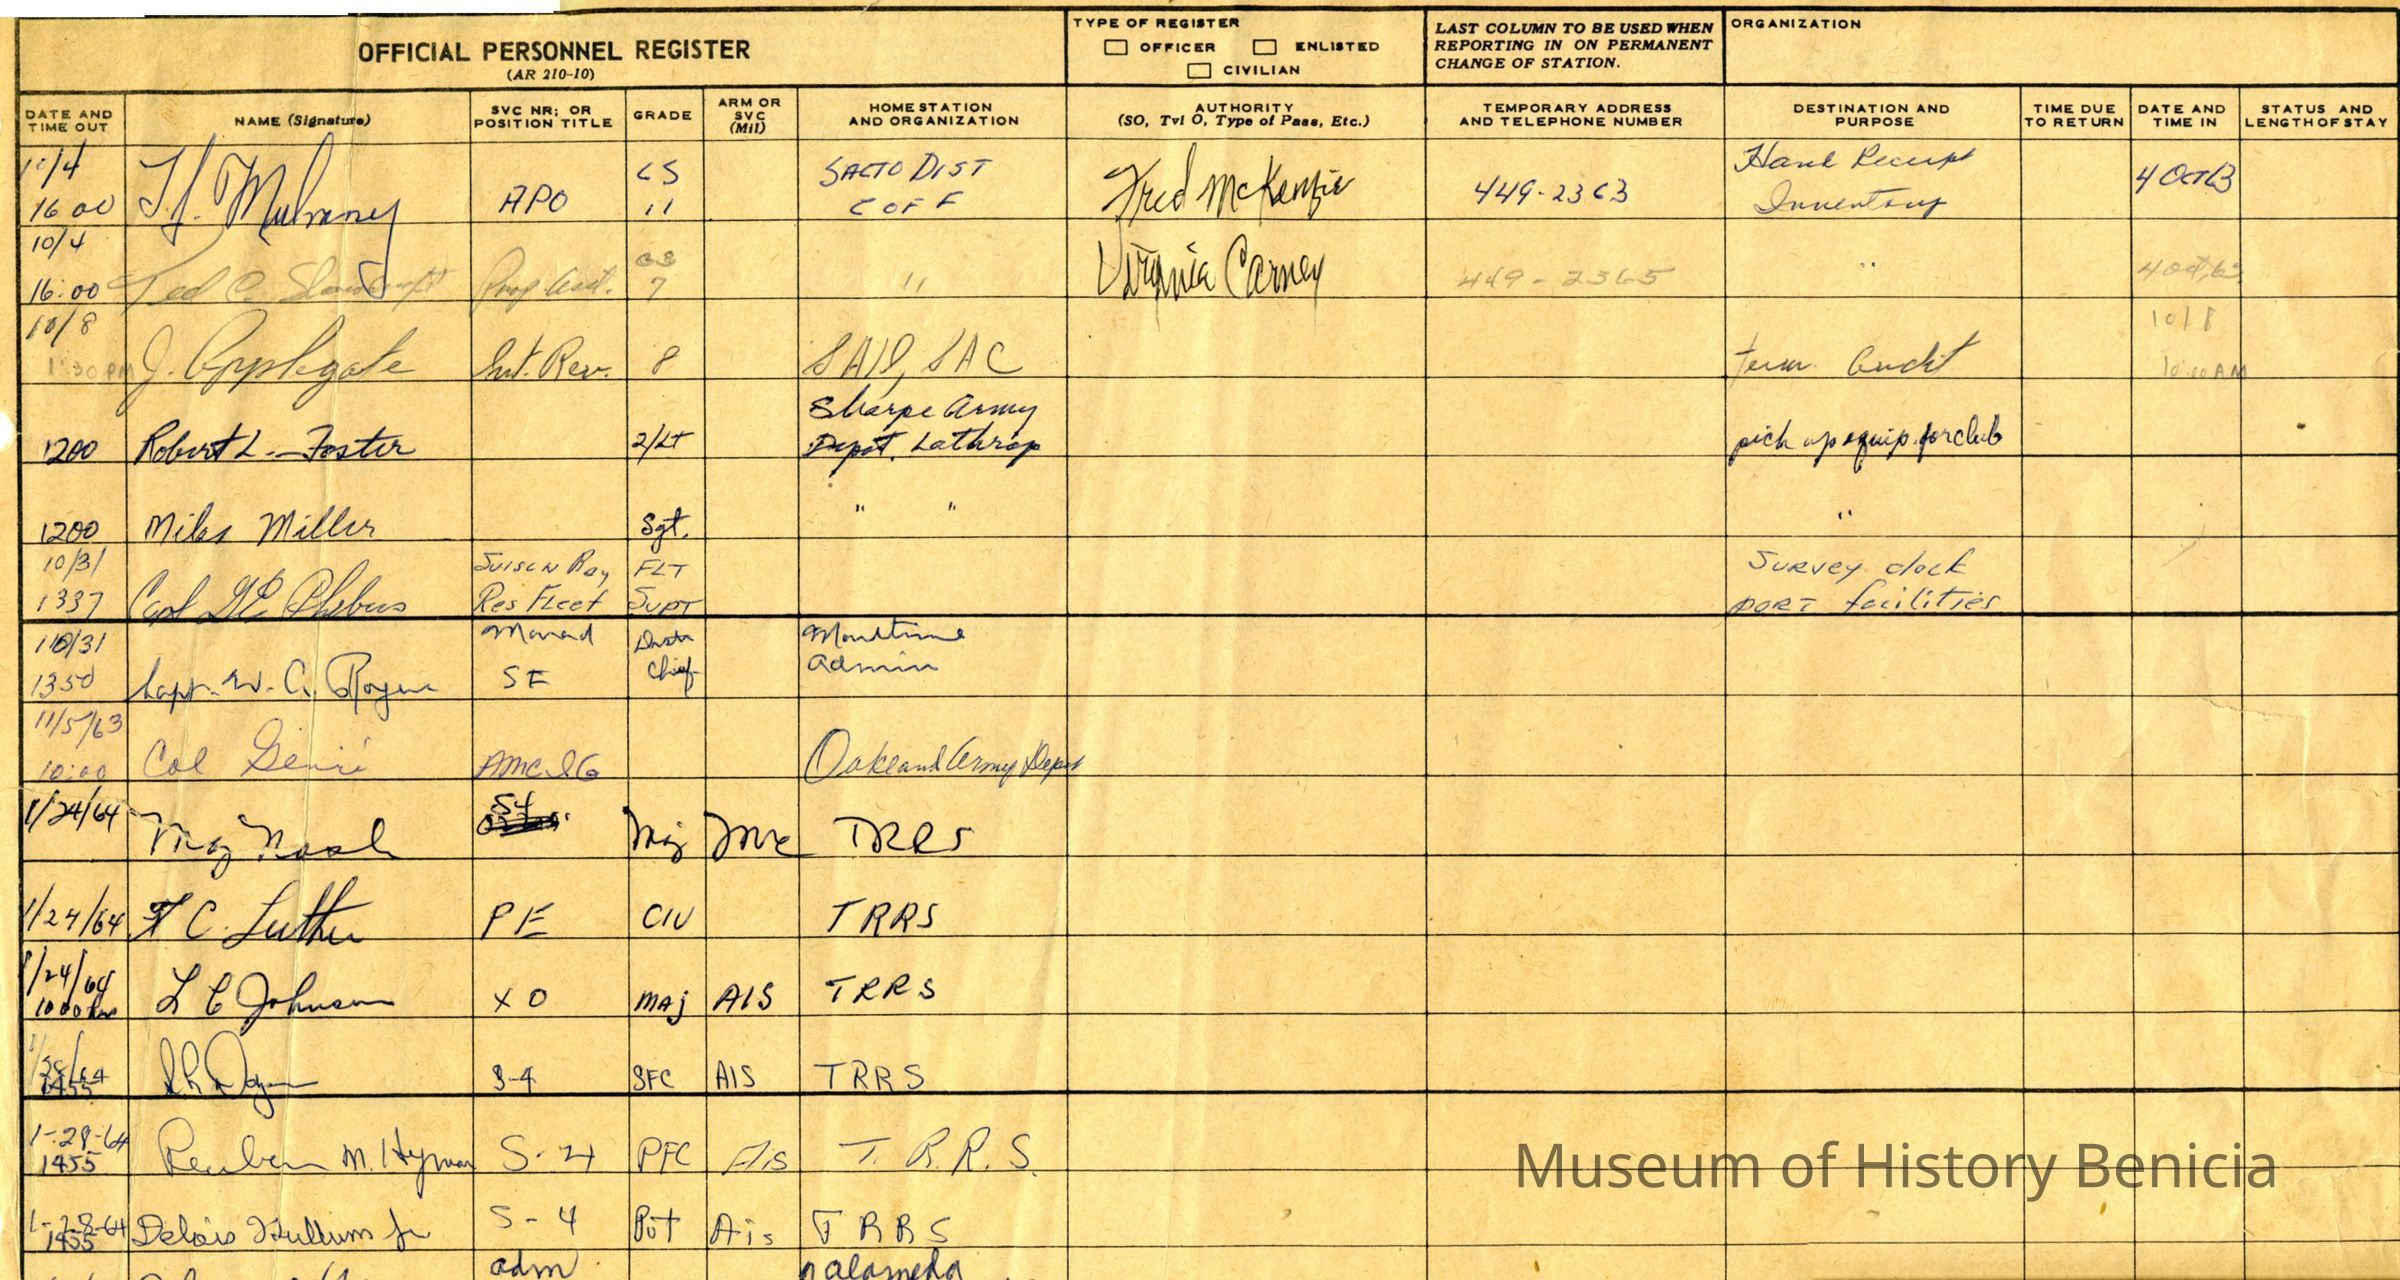 OFFICIAL PERSONNEL REGISTER
(AR 210-10)
TYPE OF REGISTER
OFFICER ENLISTED
CIVILIAN
LAST COLUMN TO BE USED WHEN
REPORTING IN ON PERMANENT
CHANGE OF STATION.
ORGANIZATION
DATE AND
TIME OUT
NAME (Signature)
SVC NR; OR
POSITION TITLE
GRADE
ARM OR
SVC
(Mil)
HOME STATION
AND ORGANIZATION
AUTHORITY
(SO, Tvl O, Type of Pass, Etc.)
TEMPORARY ADDRESS
AND TELEPHONE NUMBER
DESTINATION AND
PURPOSE
TIME DUE
TO RETURN
DATE AND
TIME IN
STATUS AND
LENGTH OF STAY
10/4 GS SACTO DIST Hand Receipt
16 00 APO 11 C OF E Fred McKenzie 449-2363 Inventory 4 Oct 63
10/4 GS
16:00 Ted C. 7 " Virginia Carney 449-2365 " 4 Oct, 63
10/8 10/8
1:30 PM J. Applegate Int. Rev. 8 SAC Audit 10:00 AM
Sharpe Army
1200 Robert L. Foster 2/LT Depot, Lathrop pick up equip. for club
1200 Miles Miller Sgt. " " "
10/31 Suisun Bay FLT Survey dock
1337 Capt Phebus Res Fleet Supt PORT facilities
10/31 Marad Maritime
1350 Capt. W. C. SF Chief Admin
11/5/63
10:00 Col AMC IG Oakland Army Depot
1/24/64 S4
Maj Maj TRRS
1/24/64 C. Luther PE CIV TRRS
1/24/64
1000 hrs L C Johnson XO Maj AIS TRRS
1455 S-4 SFC AIS TRRS
1-28-64
1455 Reuben M. Hyman S-4 PFC Ais T. R. R. S.
1-28-64
1455 Delois Hullum Jr S-4 Pvt Ais TRRS
adm alameda
Museum of History Benicia